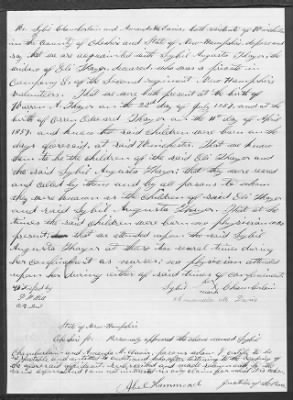 We Sybil Chamberlain and Amanda M. Davis, both residents of Winchester
in the County of Cheshire and State of New Hampshire depose and
say that we are acquainted with Sybil Augusta Thayer, the
widow of Eli Thayer deceased, who was a private in
Company of the Second regiment New Hampshire
Volunteers. That we were both present at the birth of
Warren A. Thayer on the 22d day of July 185 and at the
birth of Orren Edward Thayer on the 11th day of April
1859 and know the said children were born on the
days aforesaid, at said Winchester. That we know
them to be the children of the said Eli Thayer and
the said Sybil Augusta Thayer; that they were owned
and called by them and by all persons to whom
they were known as the children of said Eli Thayer
and said Sybil Augusta Thayer. That at the
times the said children were born no physician was
present, that we attended upon the said Sybil
Augusta Thayer at these the several times during
her confinement as nurses; no physician attended
upon her during either of said times of confinement.
Attested by
Sybil her mark Chamberlain
Amanda M. Davis
State of New Hampshire
Cheshire ss. Personally appeared the above named Sybil
Chamberlain and Amanda M. Davis, persons whom I certify to be
respectable and entitled to credit, and before
the aforesaid and made oath
Abel Hammond Justice of Peace